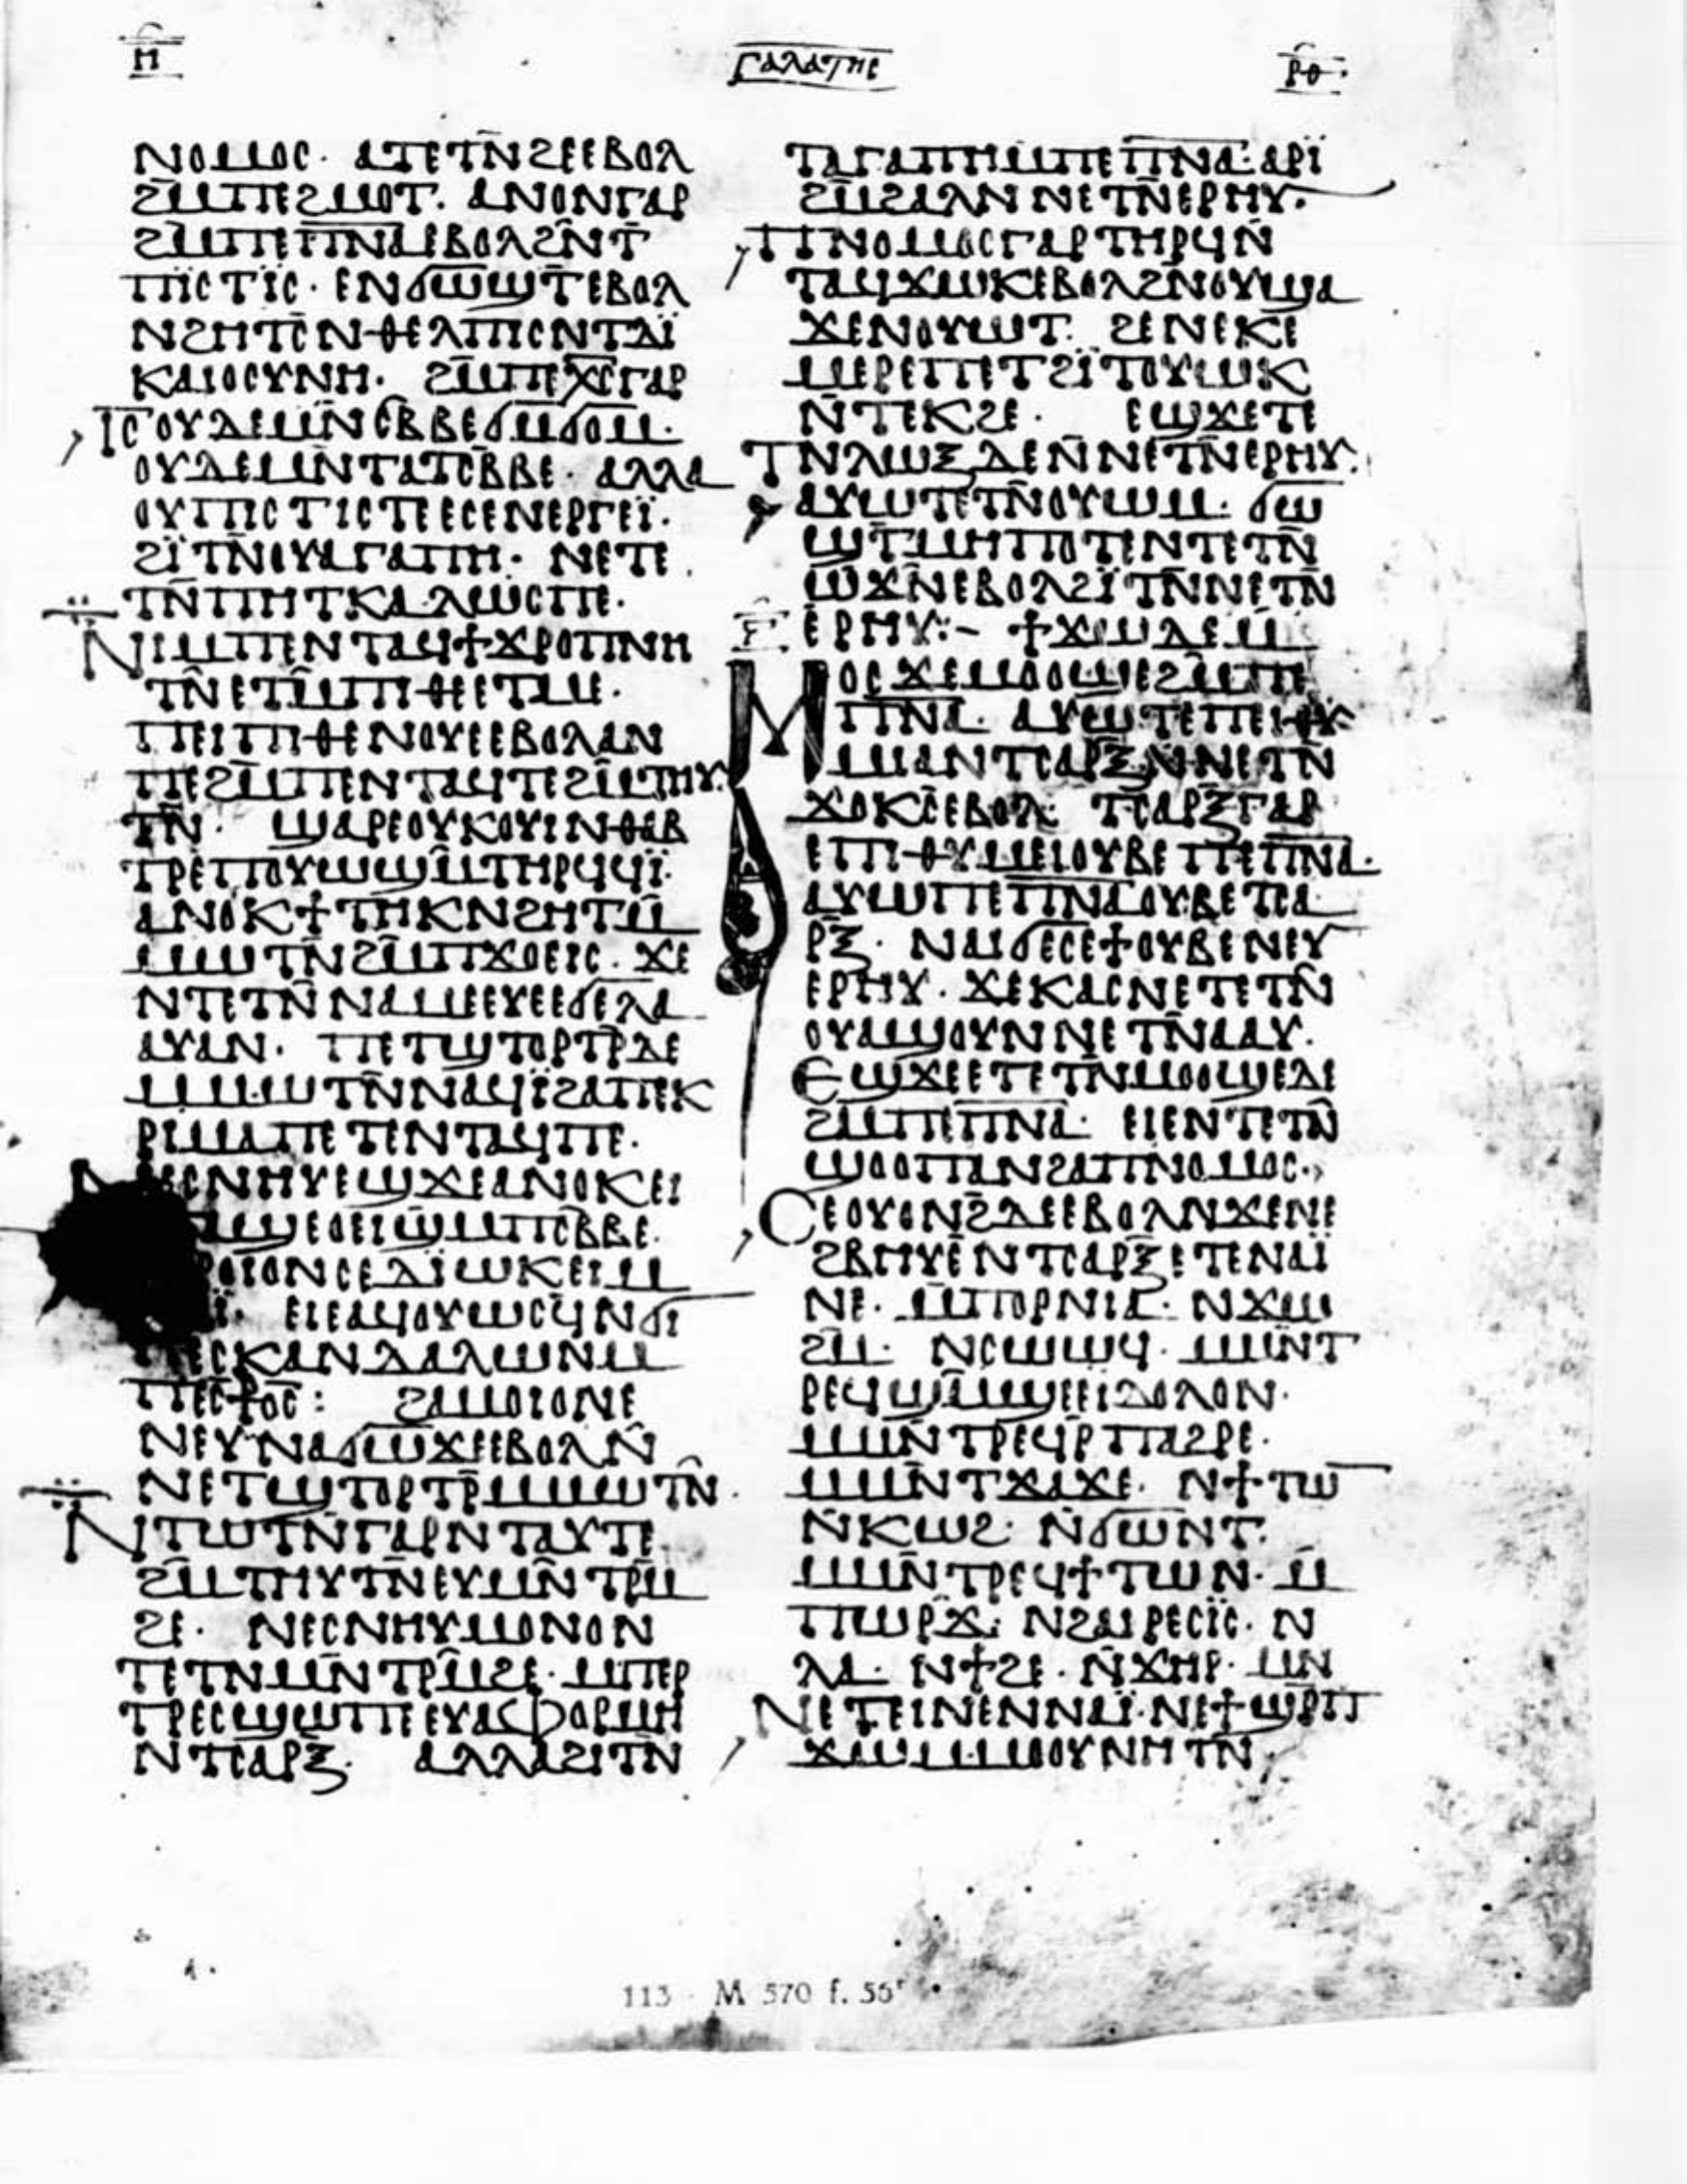 ⲏ
ⲅⲁⲗⲁⲧⲏⲥ
ⲣⲑ
ⲛⲟⲙⲟⲥ· ⲁⲧⲉⲧⲛ̄ϩⲉⲉⲃⲟⲗ
ϩⲙ̄ⲡⲉϩⲙⲟⲧ· ⲁⲛⲟⲛⲅⲁⲣ
ϩⲙ̄ⲡⲉⲡ̄ⲛ̄ⲁ̄ⲉⲃⲟⲗϩⲛ̄ⲧ
ⲡⲓ̈ⲥⲧⲓ̈ⲥ· ⲉⲛϭⲱϣⲧ̄ⲉⲃⲟⲗ
ⲛϩⲏⲧⲥ̄ⲛⲑⲉⲗⲡⲓⲥⲛⲧⲇⲓ̈
ⲕⲁⲓⲟⲥⲩⲛⲏ· ϩⲙ̄ⲡⲉⲭ̄ⲥ̄ⲅⲁⲣ
ⲓ̄ⲥ̄ ⲟⲩⲇⲉⲙⲛ̄ⲥⲃ̄ⲃⲉϭⲙ̄ϭⲟⲙ·
ⲟⲩⲇⲉⲙⲛ̄ⲧⲁⲧⲥⲃ̄ⲃⲉ· ⲁⲗⲗⲁ
ⲟⲩⲡⲓⲥⲧⲓⲥⲧⲉⲉⲥⲉⲛⲉⲣⲅⲉⲓ̈·
ϩⲓ̈ⲧⲛ̄ⲟⲩⲁⲅⲁⲡⲏ· ⲛⲉⲧⲉ
ⲧⲛ̄ⲡⲏⲧⲕⲁⲗⲱⲥⲡⲉ·
ⲛⲓⲙⲡⲉⲛⲧⲁϥϯϫⲣⲟⲡⲛⲏ
ⲧⲛ̄ⲉⲧⲙ̄ⲡⲓⲑⲉⲉⲧⲙⲉ·
ⲡⲉⲓⲡⲓⲑⲉⲛⲟⲩⲉⲉⲃⲟⲗⲁⲛ
ⲡⲉϩⲙ̄ⲡⲉⲛⲧⲁϥⲧⲉϩⲙ̄ⲧⲏⲩ
ⲧⲛ̄· ϣⲁⲣⲉⲟⲩⲕⲟⲩⲓⲛⲑⲁⲃ
ⲧⲣⲉⲡⲟⲩⲱϣⲙ̄ⲧⲏⲣϥϥⲓ̈·
ⲁⲛⲟⲕϯⲧⲏⲕⲛϩⲏⲧⲙ̄
ⲙⲱⲧⲛ̄ϩⲙ̄ⲡϫⲟⲉⲓⲥ· ϫⲉ
ⲛⲧⲉⲧⲛ̄ⲛⲁⲙⲉⲉⲩⲉⲉϭⲉⲗⲁ
ⲁⲩⲁⲛ· ⲡⲉⲧϣⲧⲟⲣⲧⲣ̄ⲇⲉ
ⲙⲙⲱⲧⲛ̄ⲛⲁϥⲓ̈ϩⲁⲡⲉⲕ
ⲣⲓⲙⲁⲡⲉⲧⲉⲛⲧⲁϥⲡⲉ·
ⲥⲛⲏⲩⲉϣϫⲉⲁⲛⲟⲕⲉⲓ
ϣⲉⲟⲉⲓϣⲙ̄ⲡⲥⲃ̄ⲃⲉ·
ⲣⲟⲓⲟⲛⲥⲉⲇⲓ̈ⲱⲕⲉⲓⲙ
ⲉⲓⲉⲁϥⲟⲩⲱⲥϥⲛϭⲓ
ⲡⲉⲥⲕⲁⲛⲇⲁⲗⲱⲛⲙ
ⲡⲉⲥⳁⲟⲥ: ϩⲁⲙⲟⲓⲟⲛⲉ
ⲛⲉⲩⲛⲁϭⲱϫⲉⲉⲃⲟⲗⲛ̄
ⲛⲉⲧϣⲧⲟⲣⲧⲣ̄ⲙⲙⲱⲧⲛ̄·
ⲛⲧⲱⲧⲛ̄ⲅⲁⲣⲛⲧⲁⲩⲧⲉ
ϩⲙ̄ⲧⲏⲩⲧⲛ̄ⲉⲩⲙⲛ̄ⲧⲣⲙ̄
ϩⲉ· ⲛⲉⲥⲛⲏⲩⲙⲟⲛⲟⲛ
ⲧⲉⲧⲛⲙⲛ̄ⲧⲣⲙ̄ϩⲉ· ⲙⲡⲉⲣ
ⲧⲣⲉⲥϣⲱⲡⲉⲉⲩⲁⲫⲟⲣⲙⲏ
ⲛⲧⲥⲁⲣⲝ· ⲁⲗⲗⲁϩⲓⲧⲛ
ⲧⲁⲅⲁⲡⲏⲙⲡⲉⲡ̄ⲛ̄ⲁ̄· ⲁⲣⲓ̈
ϩⲙ̄ϩⲁⲗⲛⲛⲉⲧⲛ̄ⲉⲣⲏⲩ·
ⲡⲛⲟⲙⲟⲥⲅⲁⲣⲧⲏⲣϥⲛ̄
ⲧⲁϥϫⲱⲕⲉⲃⲟⲗϩⲛⲟⲩϣⲁ
ϫⲉⲛⲟⲩⲱⲧ· ϩⲉⲛⲉⲕⲉ
ⲙⲉⲣⲉⲡⲉⲧϩⲓ̈ⲧⲟⲩⲱⲕ
ⲛ̄ⲧⲉⲕϩⲉ· ⲉϣϫⲉⲧⲉ
ⲧⲛⲗⲱⲝⲇⲉⲛ̄ⲛⲉⲧⲛ̄ⲉⲣⲏⲩ·
ⲁⲩⲱⲧⲉⲧⲛ̄ⲟⲩⲱⲙ· ϭⲱ
ϣⲧ̄ⲙⲏⲡⲟⲧⲉⲛⲧⲉⲧⲛ̄
ⲱϫⲛ̄ⲉⲃⲟⲗϩⲓ̈ⲧⲛ̄ⲛⲉⲧⲛ̄
ⲉⲣⲏⲩ:– ϯϫⲱⲇⲉⲙ
ⲙⲟⲥϫⲉⲙⲟⲟϣⲉϩⲙ̄ⲡⲉ
ⲡ̄ⲛ̄ⲁ̄· ⲁⲩⲱⲧⲉⲡⲉⲓⲑⲩ
ⲙⲓⲁⲛⲧⲥⲁⲣⲝⲛ̄ⲛⲉⲧⲛ̄
ϫⲟⲕⲥ̄ⲉⲃⲟⲗ: ⲧⲥⲁⲣⲝⲅⲁⲣ
ⲉⲡⲓⲑⲩⲙⲉⲓⲟⲩⲃⲉⲡⲉⲡ̄ⲛ̄ⲁ̄·
ⲁⲩⲱⲡⲉⲡ̄ⲛ̄ⲁ̄ⲟⲩⲃⲉⲧⲥⲁ
ⲣⲝ· ⲛⲁⲓϭⲉⲥⲉϯⲟⲩⲃⲉⲛⲉⲩ
ⲉⲣⲏⲩ· ϫⲉⲕⲁⲥⲛⲉⲧⲉⲧⲛ̄
ⲟⲩⲁϣⲟⲩⲛⲛⲉⲧⲛ̄ⲁⲁⲩ·
ⲉϣϫⲉⲉⲧⲉⲧⲛⲙⲟⲟϣⲉⲇⲉ
ϩⲙ̄ⲡⲉⲡ̄ⲛ̄ⲁ̄· ⲉⲓⲉⲛⲧⲉⲧⲛ̄
ϣⲟⲟⲡⲁⲛϩⲁⲡⲛⲟⲙⲟⲥ·
ⲥⲉⲟⲩⲟⲛϩ̄ⲇⲉⲉⲃⲟⲗⲛϫⲉⲛⲉ
ϩⲃⲏⲩⲉ̄ⲛⲧⲥⲁⲣⲝⲉⲧⲉⲛⲁⲓ̈
ⲛⲉ· ⲙ̄ⲡⲟⲣⲛⲓⲁ· ⲛϫⲱ
ϩⲙ· ⲛⲥⲱⲱϥ· ⲙⲙⲛ̄ⲧ
ⲣⲉϥϣⲙ̄ϣⲉⲉⲓⲇⲟⲗⲟⲛ·
ⲙⲙⲛ̄ⲧⲣⲉϥⲣ̄ⲡⲁϩⲣⲉ·
ⲙⲙⲛ̄ⲧϫⲁϫⲉ· ⲛϯⲧⲱ̄
ⲛ̄ⲕⲱϩ· ⲛ̄ϭⲱⲛⲧ·
ⲙⲙⲛ̄ⲧⲣⲉϥϯⲧⲱⲛ· ⲙ̄
ⲡⲱⲣϫ̄· ⲛϩⲁⲓⲣⲉⲥⲓ̈ⲥ· ⲛ
ⲗⲁ· ⲛϯϩⲉ· ⲛ̄ϫⲏⲣ· ⲙⲛ
ⲛⲉⲧⲉⲓⲛⲉⲛⲛⲁⲓ̈· ⲛⲉϯϣⲣ̄ⲡ
ϫⲱⲙⲙⲟⲟⲩⲛⲏⲧⲛ·
113 M 570 f. 56ʳ